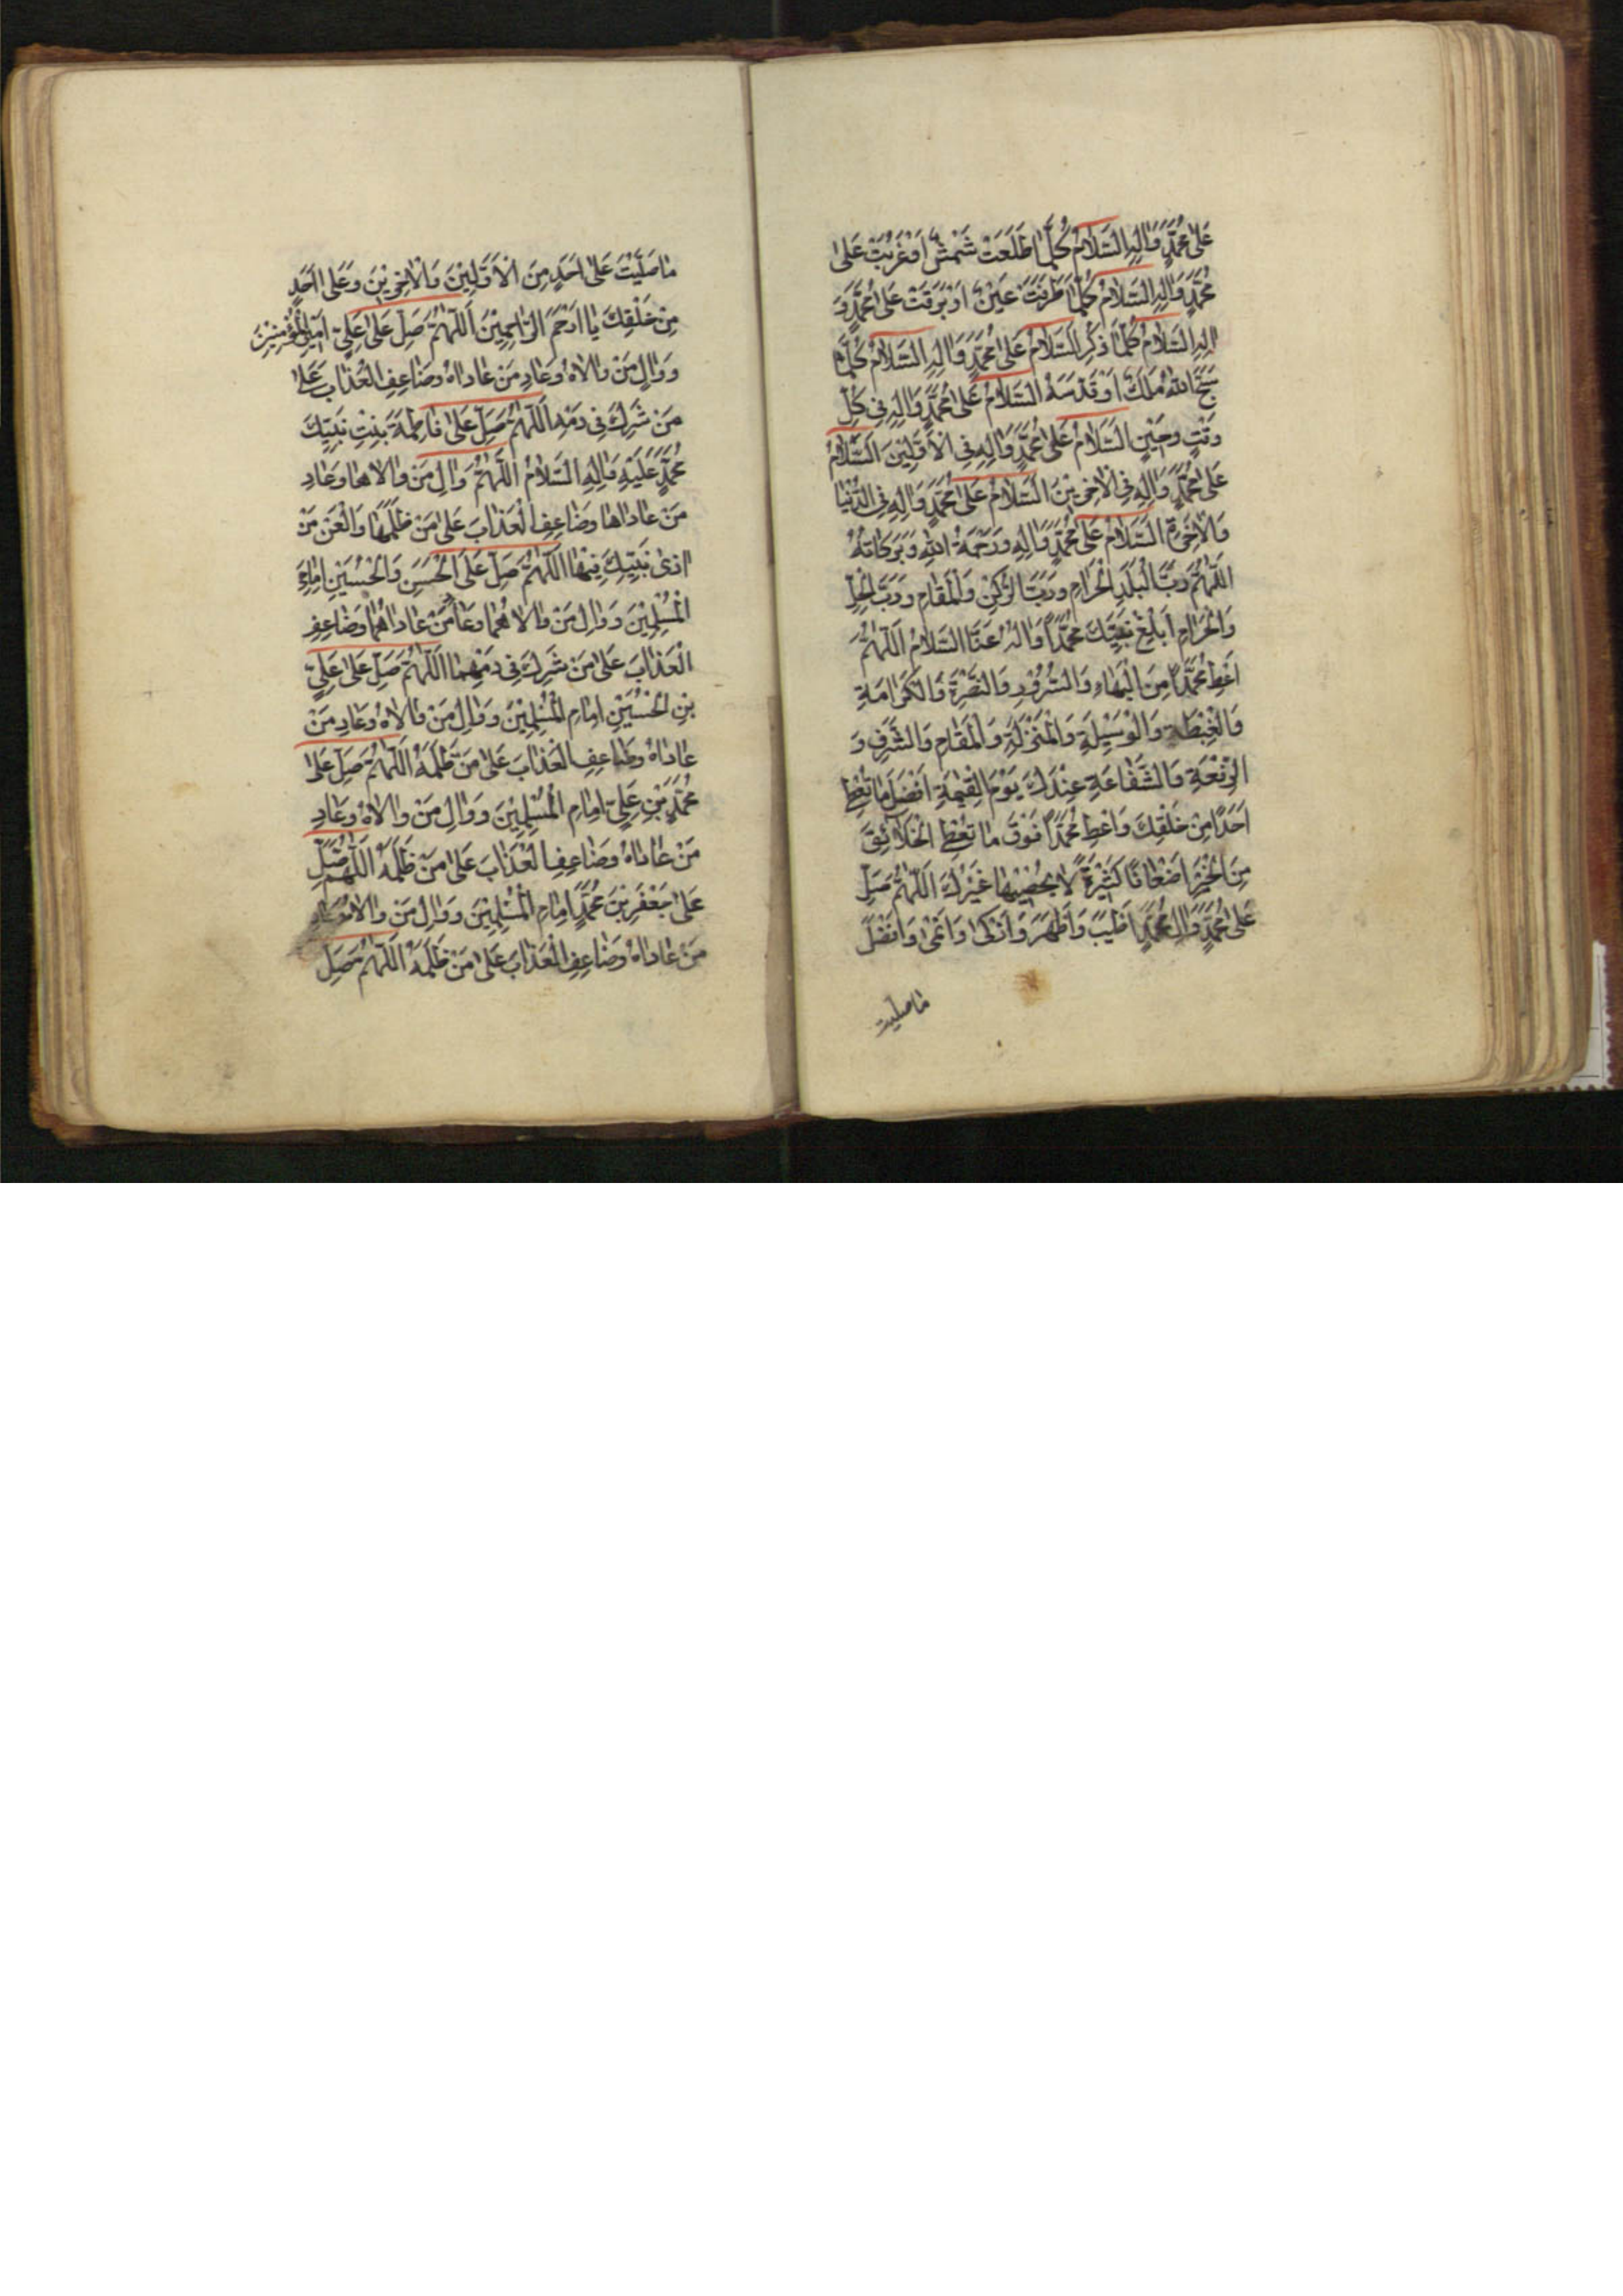 عَلىٰ مُحَمَّدٍ وَاٰلِهِ السَّلَامُ كُلَّمَا طَلَعَتْ شَمْسٌ اَوْ غَرَبَتْ عَلىٰ
مُحَمَّدٍ وَاٰلِهِ السَّلَامُ كُلَّمَا طَرَفَتْ عَيْنٌ اَوْ بَرَقَتْ عَلىٰ مُحَمَّدٍ وَ
اٰلِهِ السَّلَامُ كُلَّمَا ذُكِرَ السَّلَامُ عَلىٰ مُحَمَّدٍ وَاٰلِهِ السَّلَامُ كُلَّمَا
سَبَّحَ اللهَ مَلَكٌ اَوْ قَدَّسَهُ السَّلَامُ عَلىٰ مُحَمَّدٍ وَاٰلِهِ فِى كُلِّ
وَقْتٍ وحِيْنٍ السَّلَامُ عَلىٰ مُحَمَّدٍ وَاٰلِهِ فِى الْاَوَّلِيْنَ السَّلَامُ
عَلىٰ مُحَمَّدٍ وَاٰلِهِ فِى الْاٰخِرِيْنَ السَّلَامُ عَلىٰ مُحَمَّدٍ وَاٰلِهِ فِى الدُّنْيَا
وَالْاٰخِرَةِ السَّلَامُ عَلىٰ مُحَمَّدٍ وَاٰلِهِ وَرَحْمَةُ اللهِ وَبَرَكَاتُهُ
اَللّٰهُمَّ رَبَّ الْبَلَدِ الْحَرَامِ وَرَبَّ الرُّكْنِ وَالْمَقَامِ وَرَبَّ الْحِلِّ
وَالْحَرَامِ اَبْلِغْ نَبِيَّكَ مُحَمَّدًا وَاٰلَهُ عَنَّا السَّلَامَ اَللّٰهُمَّ
اَعْطِ مُحَمَّدًا مِنَ الْبَهَاءِ وَالسُّرُوْرِ وَالنَّضْرَةِ وَالْكَرَامَةِ
وَالْغِبْطَةِ وَالْوَسِيْلَةِ وَالْمَنْزِلَةِ وَالْمَقَامِ وَالشَّرَفِ وَ
الرِّفْعَةِ وَالشَّفَاعَةِ عِنْدَكَ يَوْمَ الْقِيٰمَةِ اَفْضَلَ مَا تُعْطِى
اَحَدًا مِنْ خَلْقِكَ وَاَعْطِ مُحَمَّدًا فَوْقَ مَا تُعْطِى الْخَلَائِقَ
مِنَ الْخَيْرِ اَضْعَافًا كَثِيْرَةً لَا يُحْصِيْهَا غَيْرُكَ اَللّٰهُمَّ صَلِّ
عَلىٰ مُحَمَّدٍ وَاٰلِ مُحَمَّدٍ اَطْيَبَ وَاَطْهَرَ وَاَزْكىٰ وَاَنْمىٰ وَاَفْضَلَ
ما صلّيت
مَا صَلَّيْتَ عَلىٰ اَحَدٍ مِنَ الْاَوَّلِيْنَ وَالْاٰخِرِيْنَ وَعَلىٰ اَحَدٍ
مِنْ خَلْقِكَ يَا اَرْحَمَ الرَّاحِمِيْنَ اَللّٰهُمَّ صَلِّ عَلىٰ عَلِيٍّ اَمِيْرِ الْمُؤْمِنِيْنَ
وَوَالِ مَنْ وَالَاهُ وَعَادِ مَنْ عَادَاهُ وضَاعِفِ الْعَذَابَ عَلىٰ
مَنْ شَرِكَ فِى دَمِهِ اَللّٰهُمَّ صَلِّ عَلىٰ فَاطِمَةَ بِنْتِ نَبِيِّكَ
مُحَمَّدٍ عَلَيْهِ وَاٰلِهِ السَّلَامُ اَللّٰهُمَّ وَالِ مَنْ وَالَاهَا وَعَادِ
مَنْ عَادَاهَا وضَاعِفِ الْعَذَابَ عَلىٰ مَنْ ظَلَمَهَا وَالْعَنْ مَنْ
اٰذىٰ نَبِيَّكَ فِيْهَا اَللّٰهُمَّ صَلِّ عَلَى الْحَسَنِ وَالْحُسَيْنِ اِمَامَيِ
الْمُسْلِمِيْنَ وَوَالِ مَنْ وَالَاهُمَا وَعَادِ مَنْ عَادَاهُمَا وَضَاعِفِ
الْعَذَابَ عَلىٰ مَنْ شَرِكَ فِى دَمِهِمَا اَللّٰهُمَّ صَلِّ عَلىٰ عَلِيِّ
بْنِ الْحُسَيْنِ اِمَامِ الْمُسْلِمِيْنَ وَوَالِ مَنْ وَالَاهُ وَعَادِ مَنْ
عَادَاهُ وضَاعِفِ الْعَذَابَ عَلىٰ مَنْ ظَلَمَهُ اَللّٰهُمَّ صَلِّ عَلىٰ
مُحَمَّدِ بْنِ عَلِيٍّ اِمَامِ الْمُسْلِمِيْنَ وَوَالِ مَنْ وَالَاهُ وَعَادِ
مَنْ عَادَاهُ وضَاعِفِ الْعَذَابَ عَلىٰ مَنْ ظَلَمَهُ اَللّٰهُمَّ صَلِّ
عَلىٰ جَعْفَرِ بْنِ مُحَمَّدٍ اِمَامِ الْمُسْلِمِيْنَ وَوَالِ مَنْ وَالَاهُ وَعَادِ
مَنْ عَادَاهُ وَضَاعِفِ الْعَذَابَ عَلىٰ مَنْ ظَلَمَهُ اَللّٰهُمَّ صَلِّ